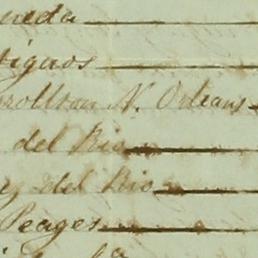 neda
tiguos
rollton N. Orleans
del Rio
y del Rio
Peages